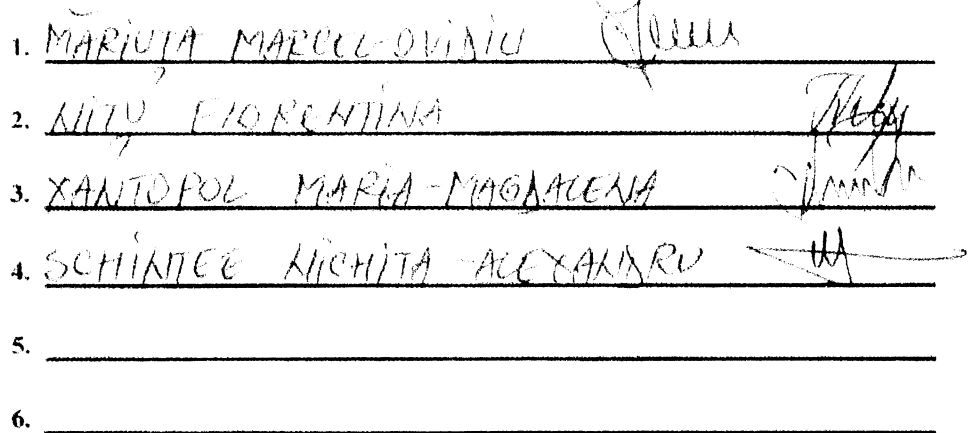 1. MĂRIUȚA MARCEL-OVIDIU
2. NIȚU FLORENTINA
3. XANTOPOL MARIA-MAGDALENA
4. SCHINTEE NICHITA-ALEXANDRU
5.
6.